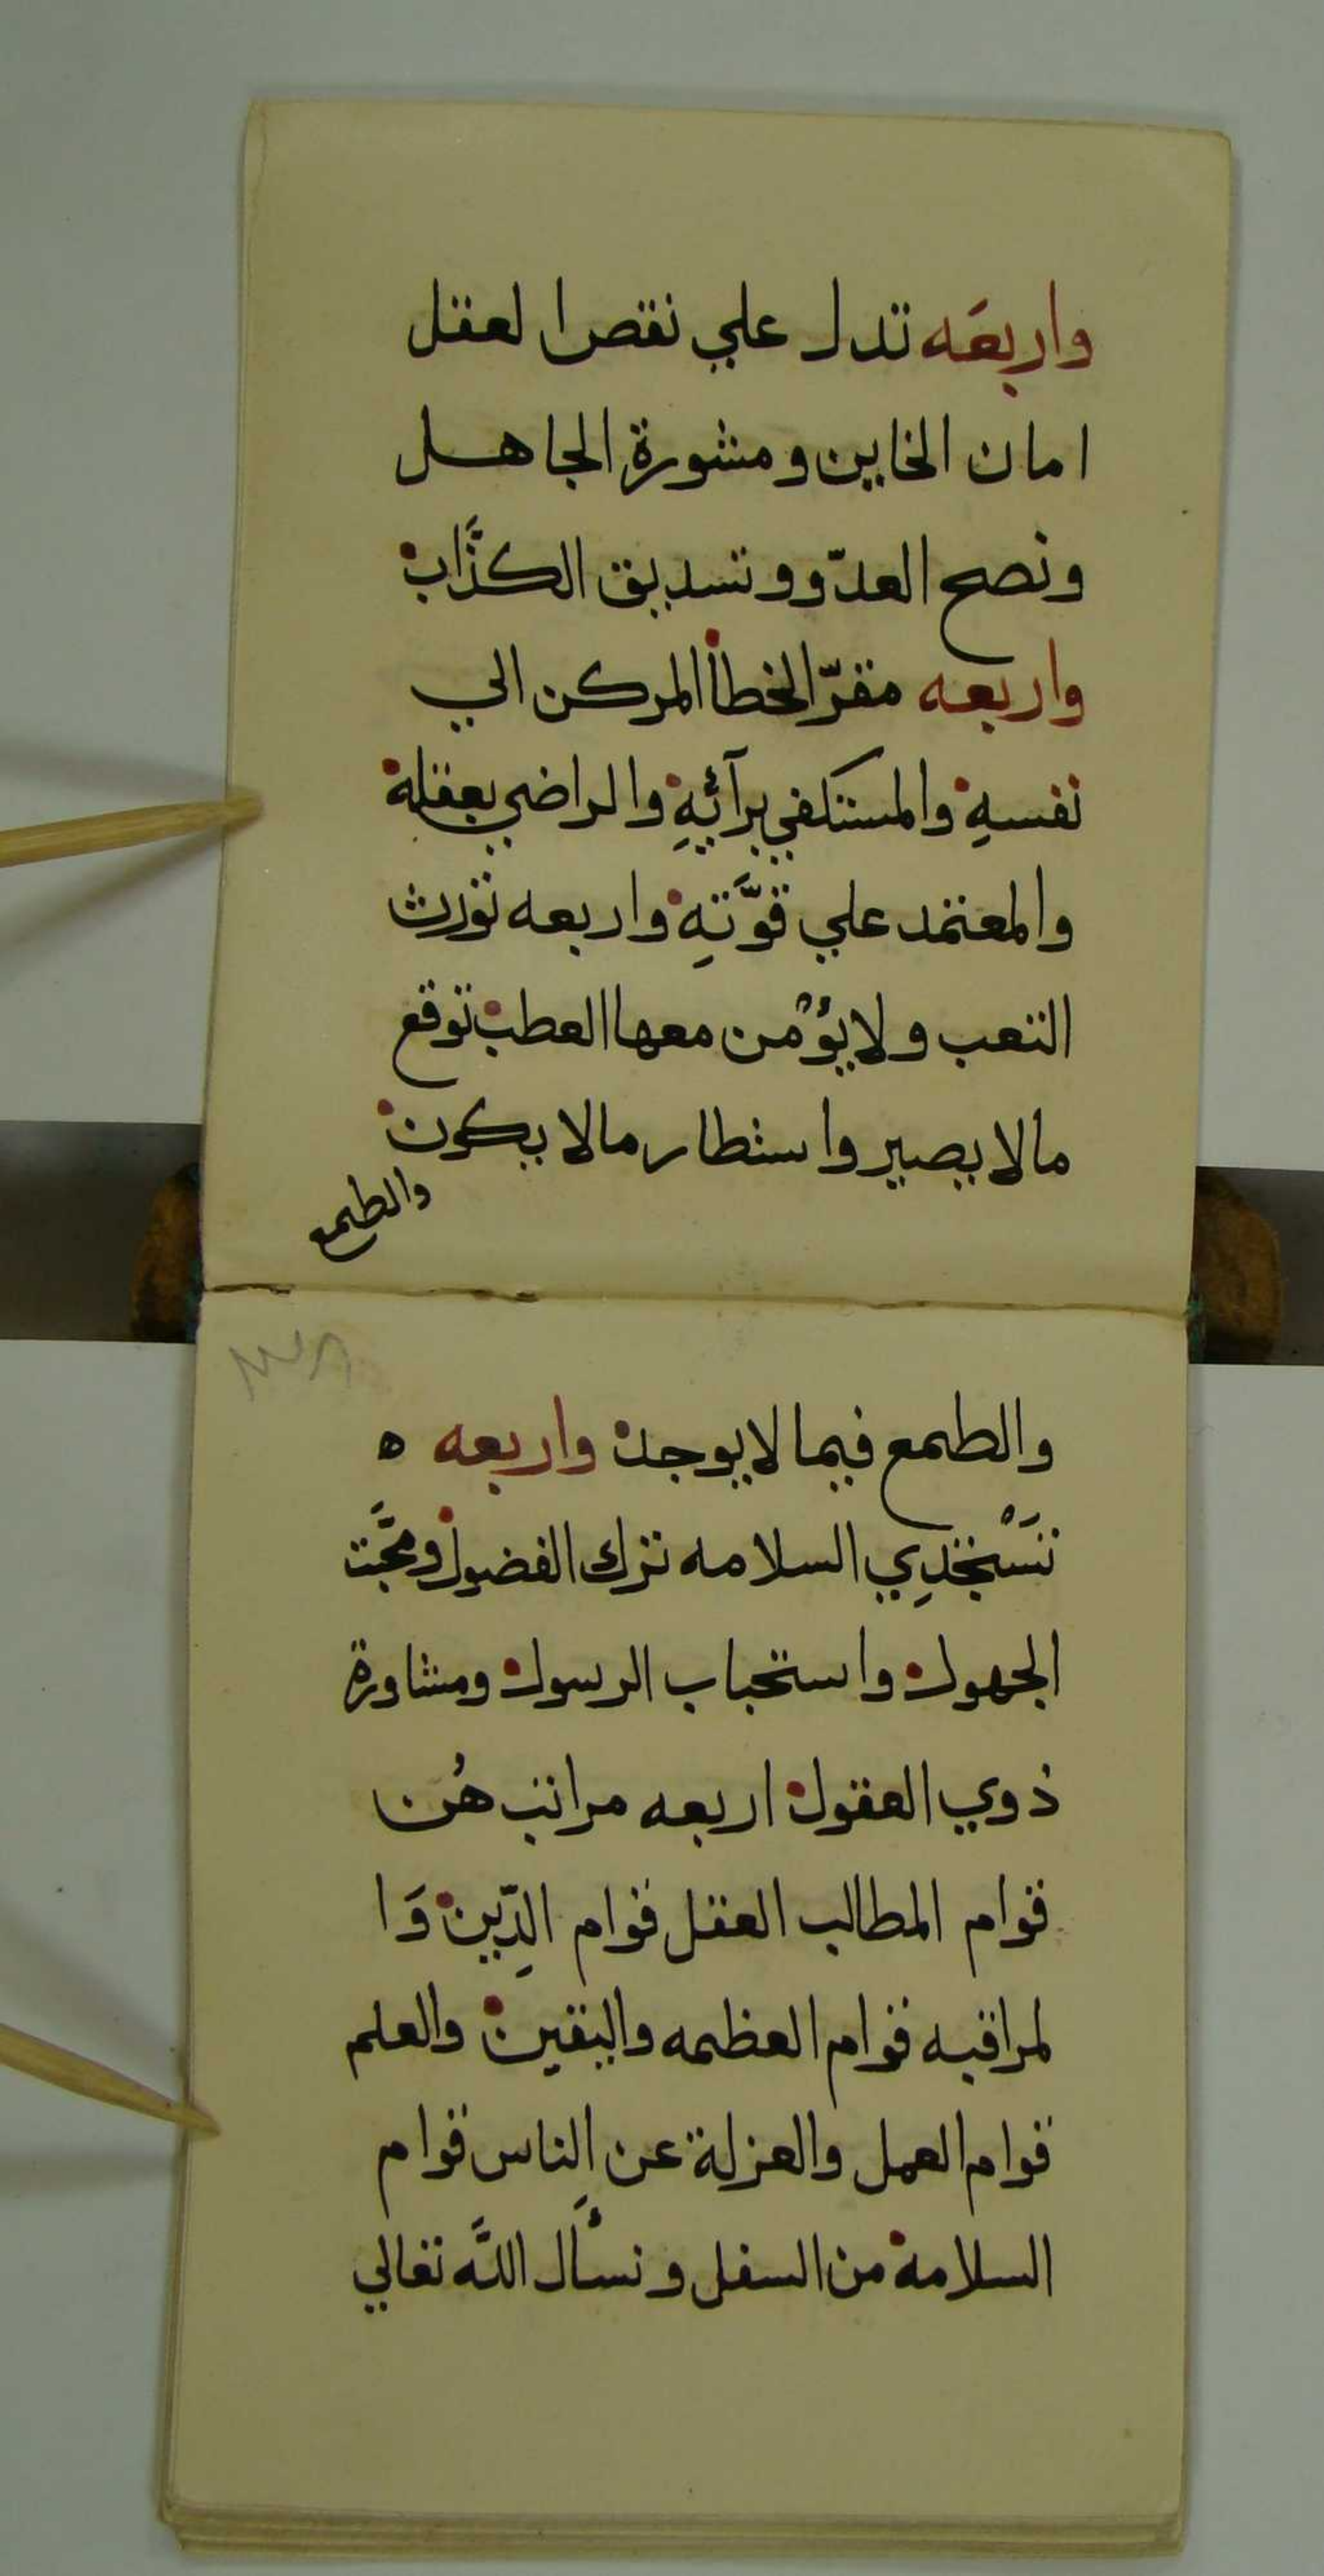 واربعَه تدل علي نقص العقل
امان الخاين ومشورة الجاهل
ونصح العدّو وتسديق الكذَّاب
واربعه مقرّ الخطأ المركن الي
نفسهِ والمستكفي برآئيهِ والراضي بعقلة
والمعتمد علي قوَّتهِ واربعه تورث
التعب ولا يؤْمن معها العطب توقع
مالا يصير واستطار مالا يكون
والطمع
والطمع فيما لا يوجد واربعه ه
تَسْتجْدِي السلامه ترك الفضول ومحَّبت
الجهول واستحباب الرسول ومشاورة
ذوي العقول اربعه مراتب هُن
قوام المطالب العقل قوام الدِّين وَا
لمراقبه قوام العظمه واليقين والعلم
قوام العمل والعزلة عن الناس قوام
السلامة من السفل ونسأَل اللَّه تعالي